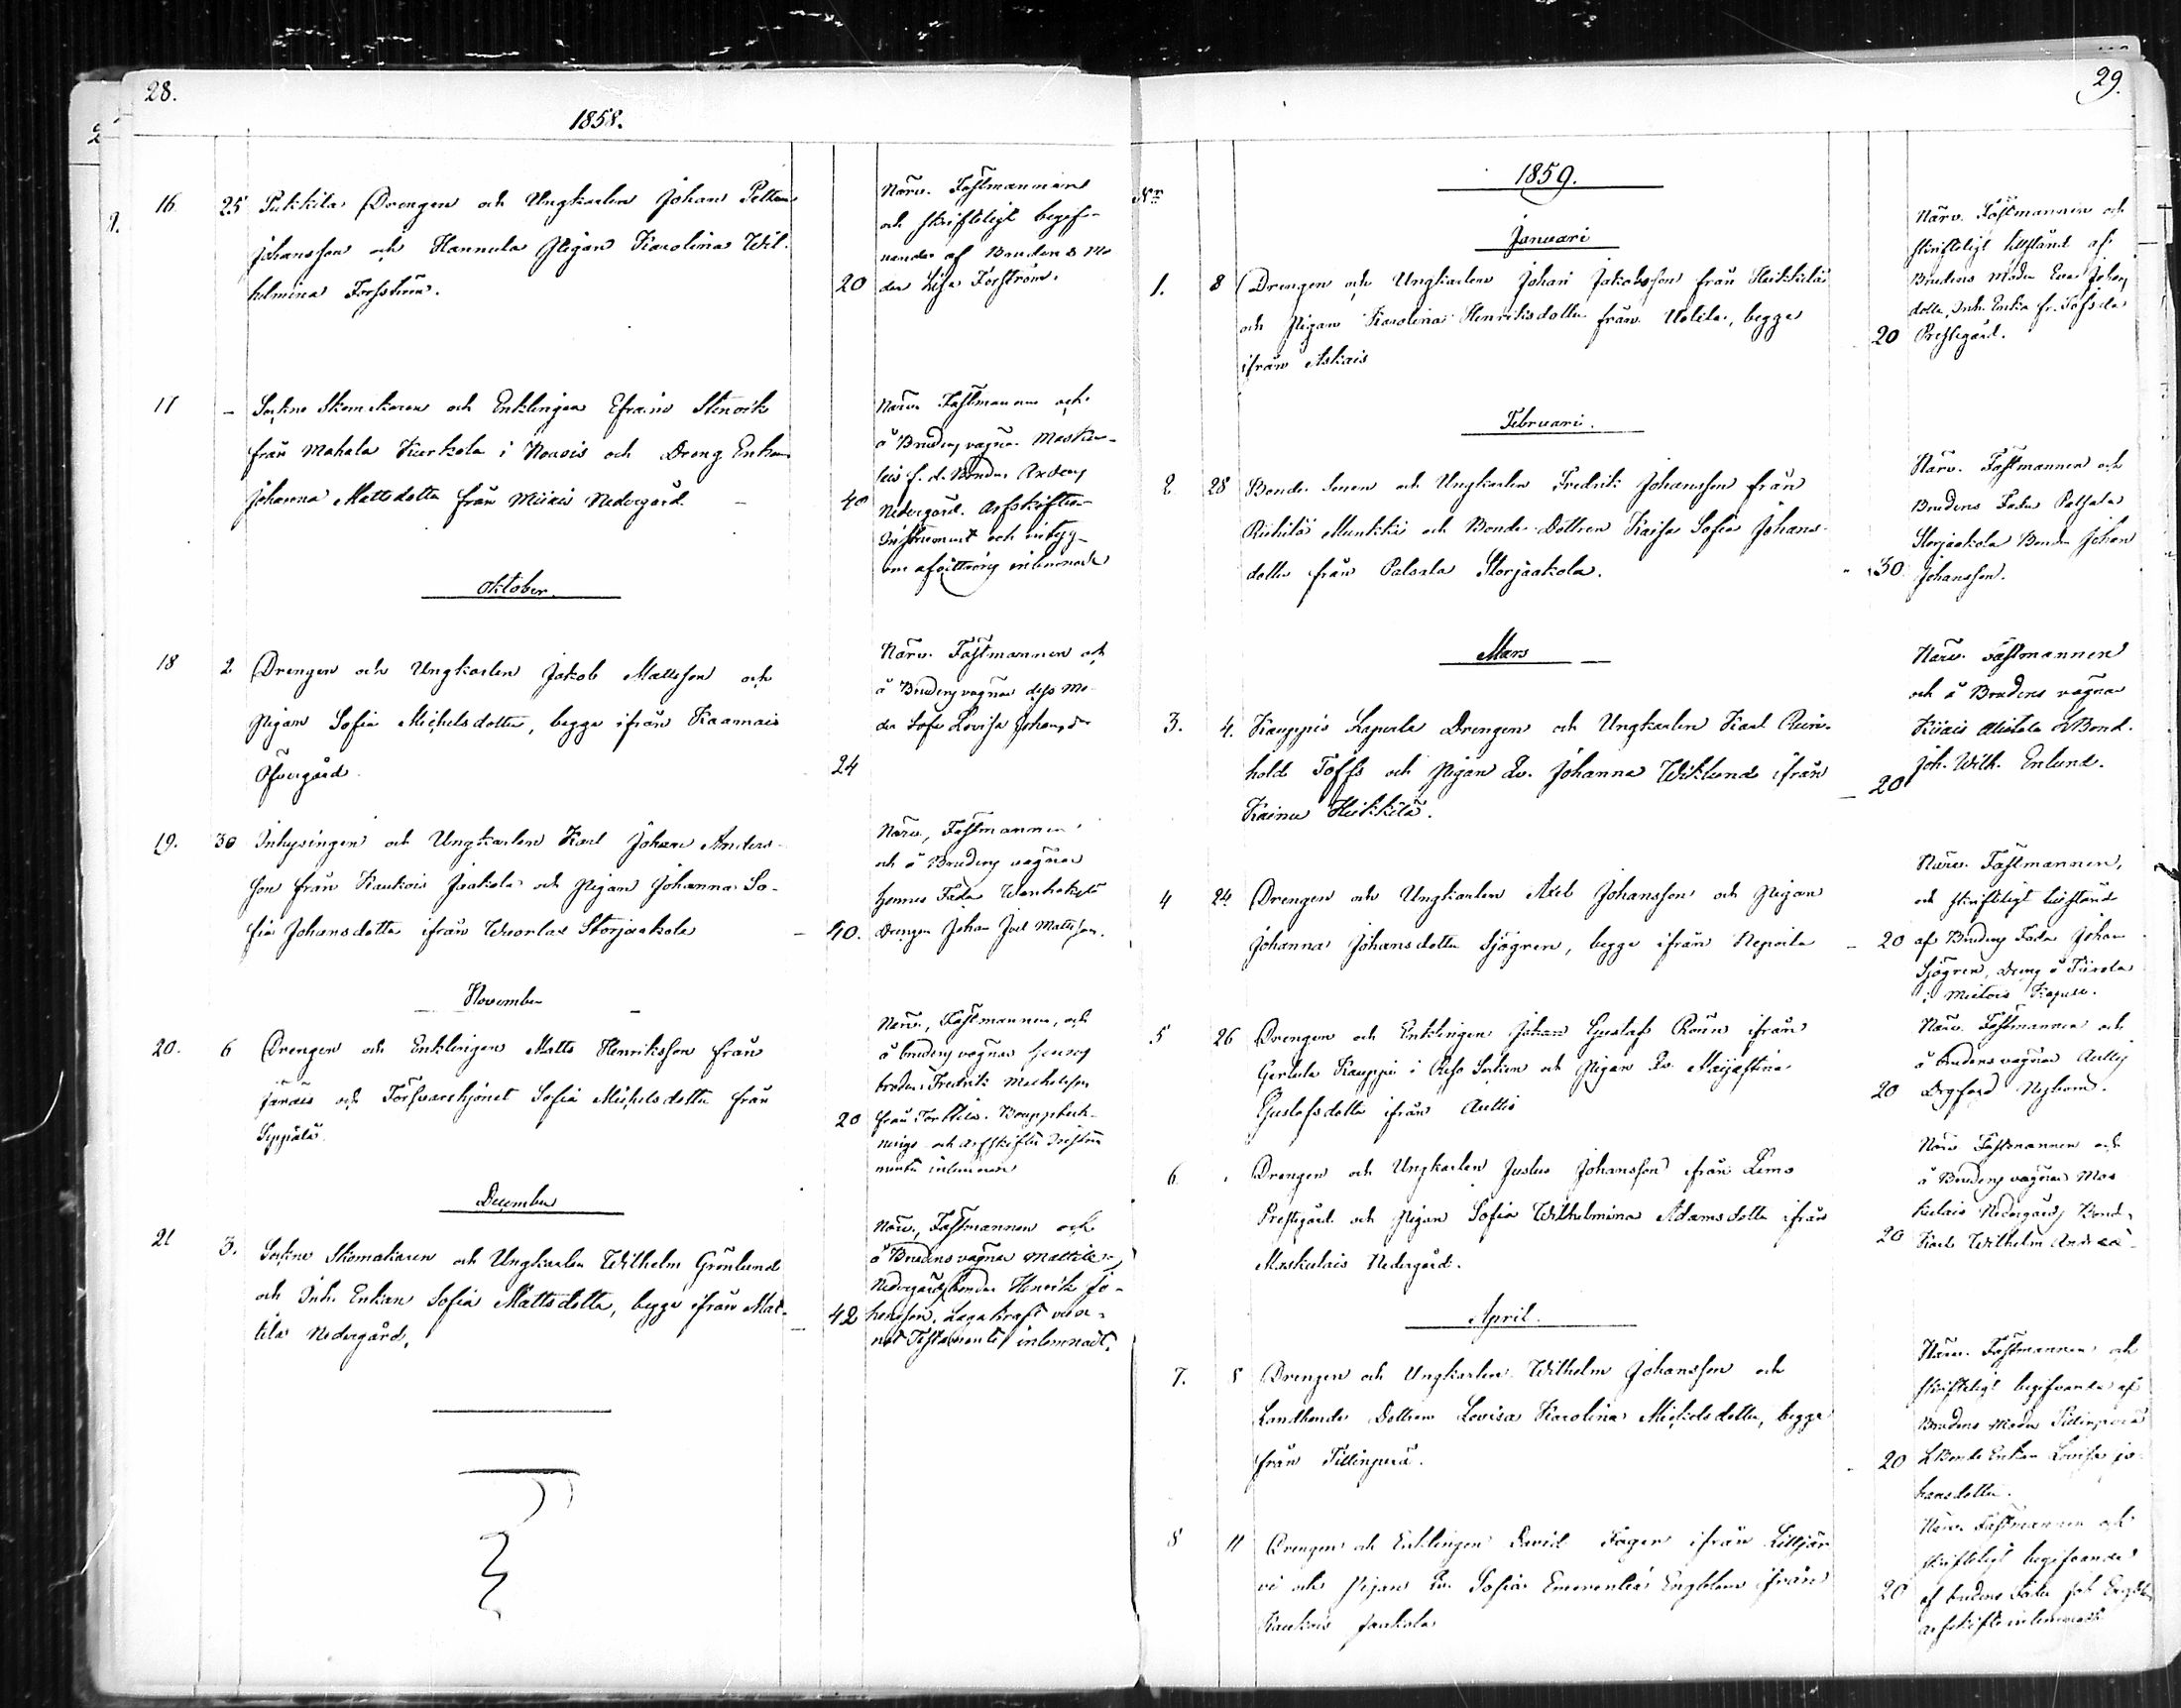 28.
1858.
16 25 Pukkila Drengen och Ungkarlen Johan Petter
Johansson och Hannula Pigan Karolina Wil-
helmina Forsström.
20
Närv. Fästmannen
och skrifteligt begif-
vande af Brudens Mo
der Lisa Forström.
17 - Sockne Skomakaren och Enklingen Efraim Stenvik
från Mahala Kurkola i Nousis och Dreng Enkan
Johanna Mattsdotter från Miikis Nedergård.
40
Närv. Fästmannen och
å Brudens vägnar Masku-
Bonden
Nedergård. Arfskiftes
Instrument och intyg
om afvittring inlemnade
Oktober.
18 2 Drengen och Ungkarlen Jakob Mattsson och
Pigan Sofia Michelsdotter, begge ifrån Kaamais
Öfvergård.
24
Närv. Fästmannen och
å Brudens vägnar dess Mo-
der Sofia Lovisa Johansdr
19. 30 Inhysingen och Ungkarlen Karl Johan Anders-
son från Kaukois Jaakola och Pigan Johanna So-
fia Johansdotter ifrån Wuorlax Storjaakola
40.
Närv. Fästmannen
och å Brudens vägnar
hennes Fader
Drengen Johan Joel Mattsson.
November
20. 6 Drengen och Enklingen Matts Henriksson från
Järais och Försvarshjonet Sofia Michelsdotter från
Seppälä.
20
Närv. Fästmannen, och
å brudens vägnar hennes
broder Fredrik Michelsson
från Torkkila. Bouppteck-
nings och arfskiftes Instru
menter inlemnade
December
21 3. Sockne Skomakaren och Ungkarlen Wilhelm Grönlund
och Inh. Enkan Sofia Mattsdotter, begge ifrån Mat-
tila Nedergård.
42
Närv. Fästmannen och
å Brudens vägnar Mattila
Nedergårds bonden Henrik Jo-
hansson. Laga kraft vun-
net Testamente inlemnadt.
29.
Nr
1859.
Januari
1. 8 Drengen och Ungkarlen Johan Jakobsson från Heikkilä
och Pigan Karolina Henriksdotter från Uotila, begge
ifrån Askais
20
Närv. Fästmannen och
skrifteligt tillstånd af
Brudens Moder Eva Johans
dotter, Inh. Enka fr.
Prestegård.
Februari.
2 28 Bonde Sonen och Ungkarlen Fredrik Johansson från
Riihilä Munkkis och Bonde-Dottren Kaisa Sofia Johans-
dotter från Palsala Storjaakola.
30
Närv. Fästmannen och
Brudens Fader Palsala
Storjaakola Bonden Johan
Johansson.
Mars
3. 4. Kauppis Laperla Drengen och Ungkarlen Karl Rein-
hold Töffs och Pigan Ev. Johanna Wiklund ifrån
Kainu Heikkilä.
20
Närv. Fästmannen
och å Brudens vägnar
Kiiais Alitalo Bond.
Joh. Wilh. Enlund.
4 24 Drengen och Ungkarlen Axel Johansson och Pigan
Johanna Johansdotter Sjögren, begge ifrån Nepoila
20
Närv. Fästmannen,
och skrifteligt tillstånd
af Brudens Fader Johan
Sjögren, Dreng å
i Mietois Kapell.
5 26 Drengen och Enklingen Johan Gustaf Roun ifrån
Gertula Kauppi i Reso Socken och Pigan Ev. Maijastina
Gustafsdotter ifrån Aullis
20
Närv. Fästmannen och
å brudens vägnar Aullis
6 Drengen och Ungkarlen Justus Johansson ifrån Lemo
Prestgård och Pigan Sofia Wilhelmina Adamsdotter ifrån
Maskulais Nedergård.
20
Närv. Fästmannen och
å Brudens vägnar Mas
kulais Nedergårds Bond.
Karl Wilhelm
April.
7. 8 Drengen och Ungkarlen Wilhelm Johansson och
Landbonde Dottren Lovisa Karolina Michelsdotter, begge
från Tillinperä.
20
Närv. Fästmannen och
skrifteligt begifvande af
Brudens Moder Tillinperä
LBonde Enkan Lovisa Jo
hansdotter.
8 11 Drengen och Enklingen David Fager ifrån Littjär
vi och Pigan Ev. Sofia Emerentia Engblom ifrån
Kaukois Jaakola
20
Närv. Fästmannen och
skrifteligt begifvande
af brudens Fader Joh Engblom
arfskifte inlemnadt